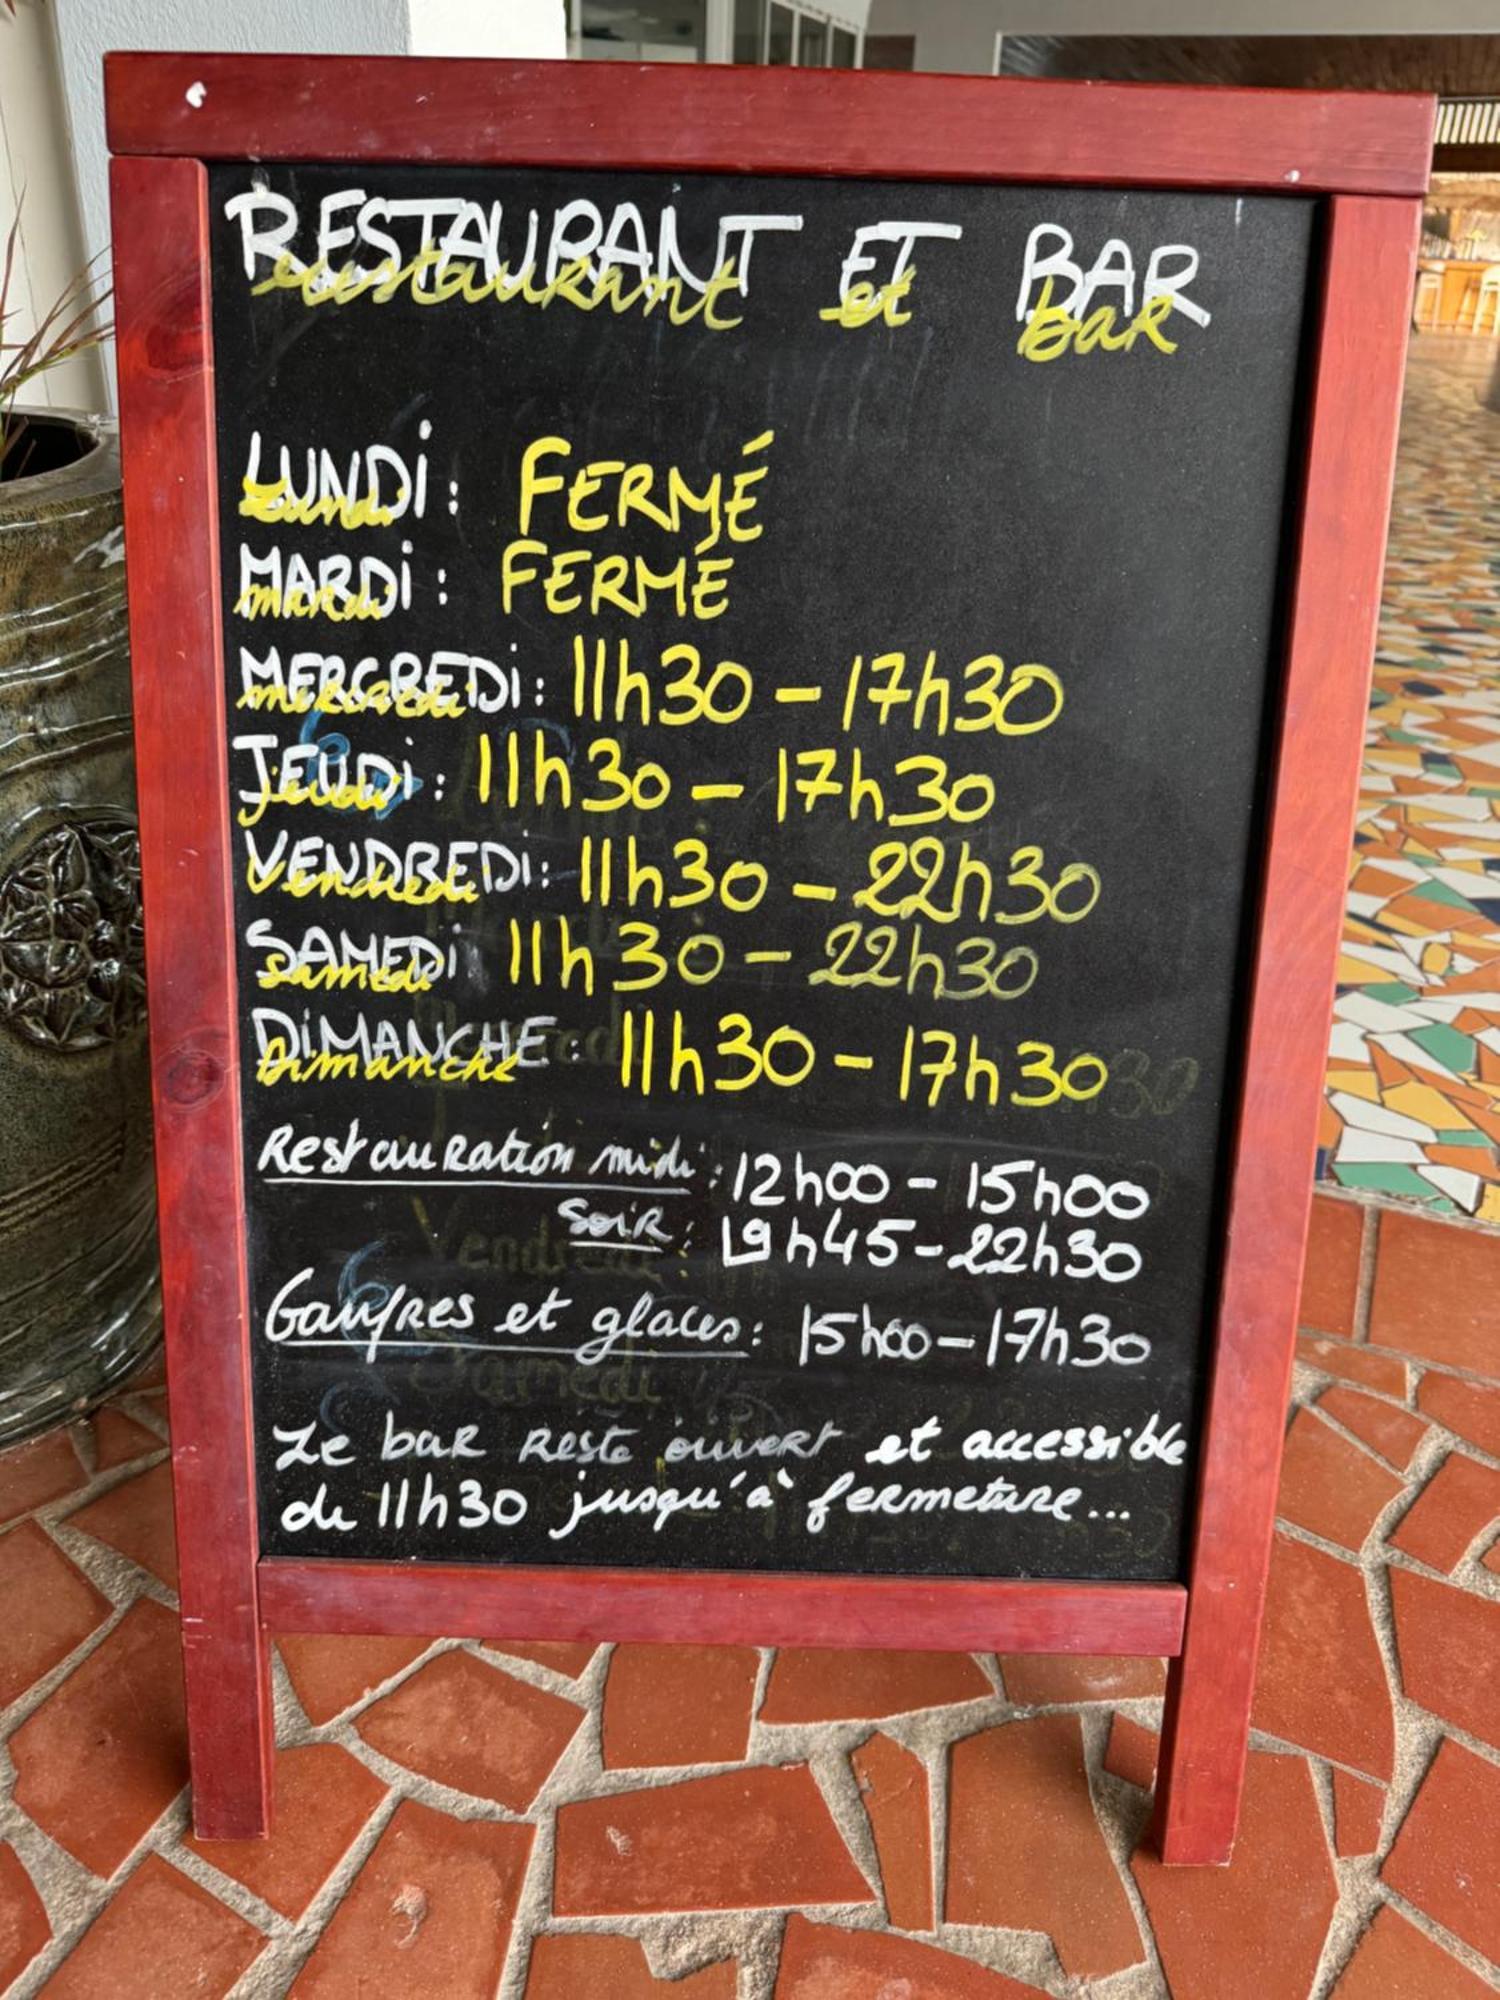 RESTAURANT ET BAR
restaurant et bar
LUNDI : FERMÉ
lundi
MARDI : FERMÉ
mardi
MERCREDI : 11h30 - 17h30
mercredi
JEUDI : 11h30 - 17h30
jeudi
VENDREDI : 11h30 - 22h30
Vendredi
SAMEDI 11h30 - 22h30
samedi
DIMANCHE : 11h30 - 17h30
Dimanche
Restauration midi : 12h00 - 15h00
Soir : 19h45 - 22h30
Gaufres et glaces : 15h00 - 17h30
Le bar reste ouvert et accessible
de 11h30 jusqu'à fermeture...